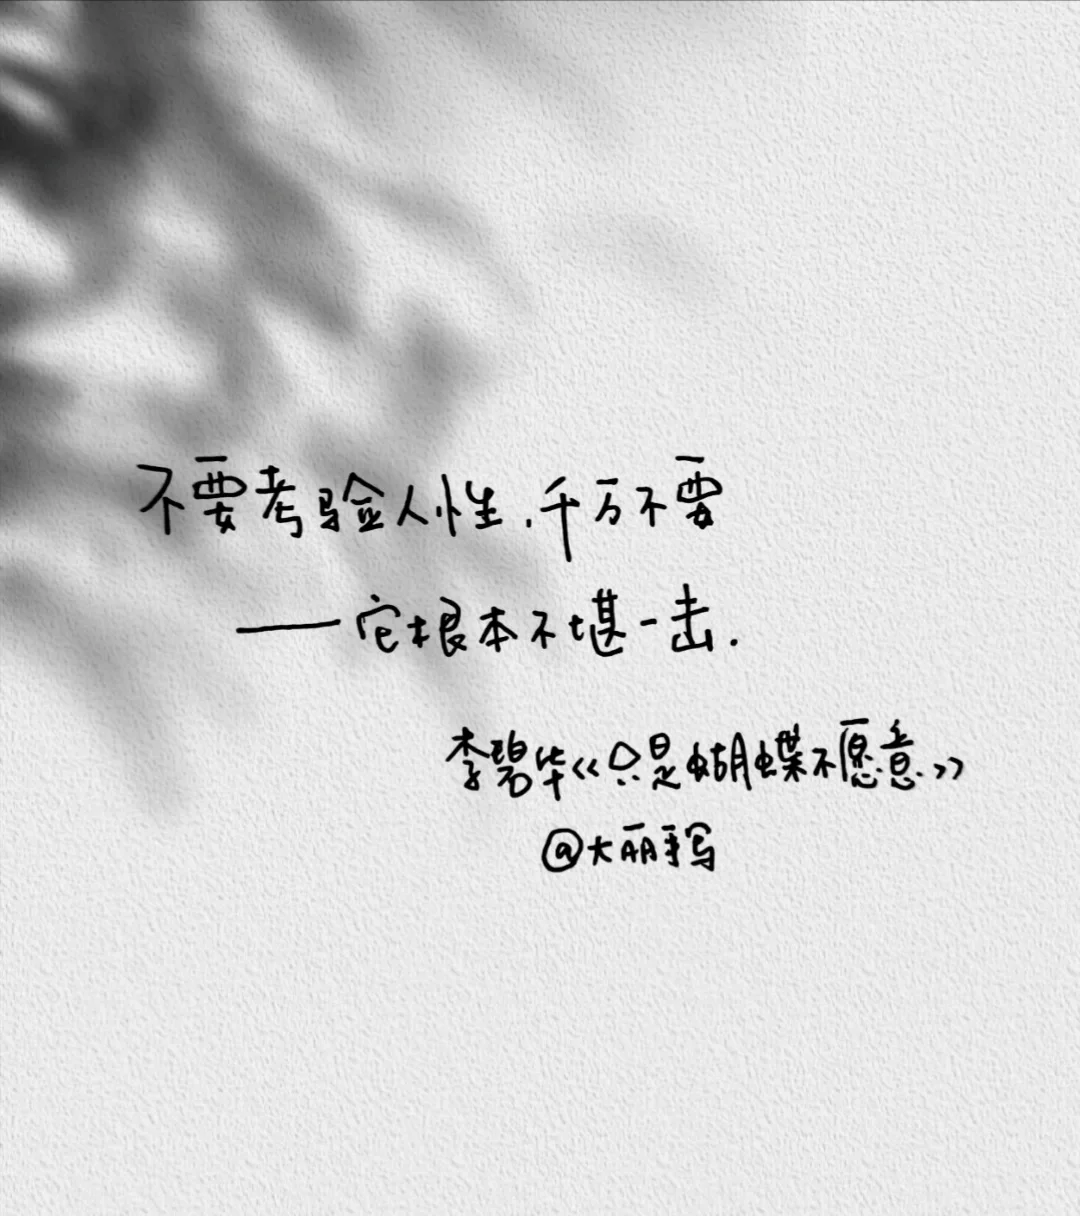 不要考验人性.千万不要
——它根本不堪一击.
李碧华《只是蝴蝶不愿意》
@大丽手写